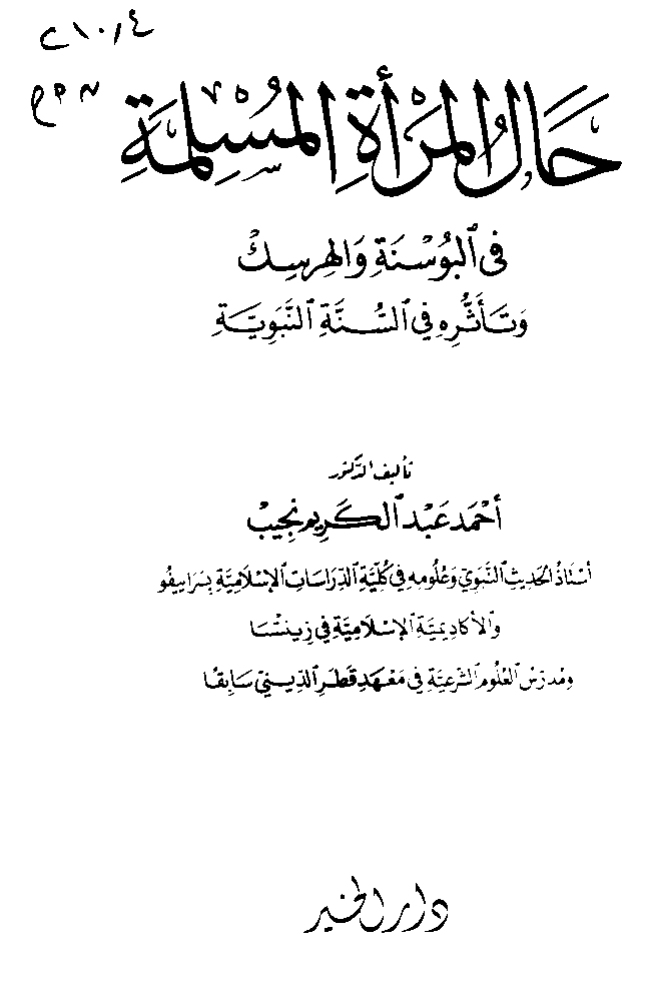 ٢١٠/٤
حَالُ المَرْأَةِ المُسْلِمَةِ
فِي البُوسْنَةِ وَالهِرسِك
وَتَأَثُّرِهِ فِي السُّنَّةِ النَّبَوِيَّةِ
تأليف الدكتور
أحْمَد عَبْد الكَرِيم نَجِيبْ
أسْتَاذُ الحَدِيثِ النَّبَوِيِّ وَعُلُومِهِ فِي كُلِّيَّةِ الدِّرَاسَاتِ الإسْلَامِيَّةِ بِسَرَايِيفُو
وَالأكَادِيمِيَّةِ الإسْلَامِيَّةِ فِي زِينِتْسَا
وَمُدَرِّسُ العُلُومِ الشَّرْعِيَّةِ فِي مَعْهَدِ قَطَرِ الدِّينِيِّ سَابِقًا
دار الخير